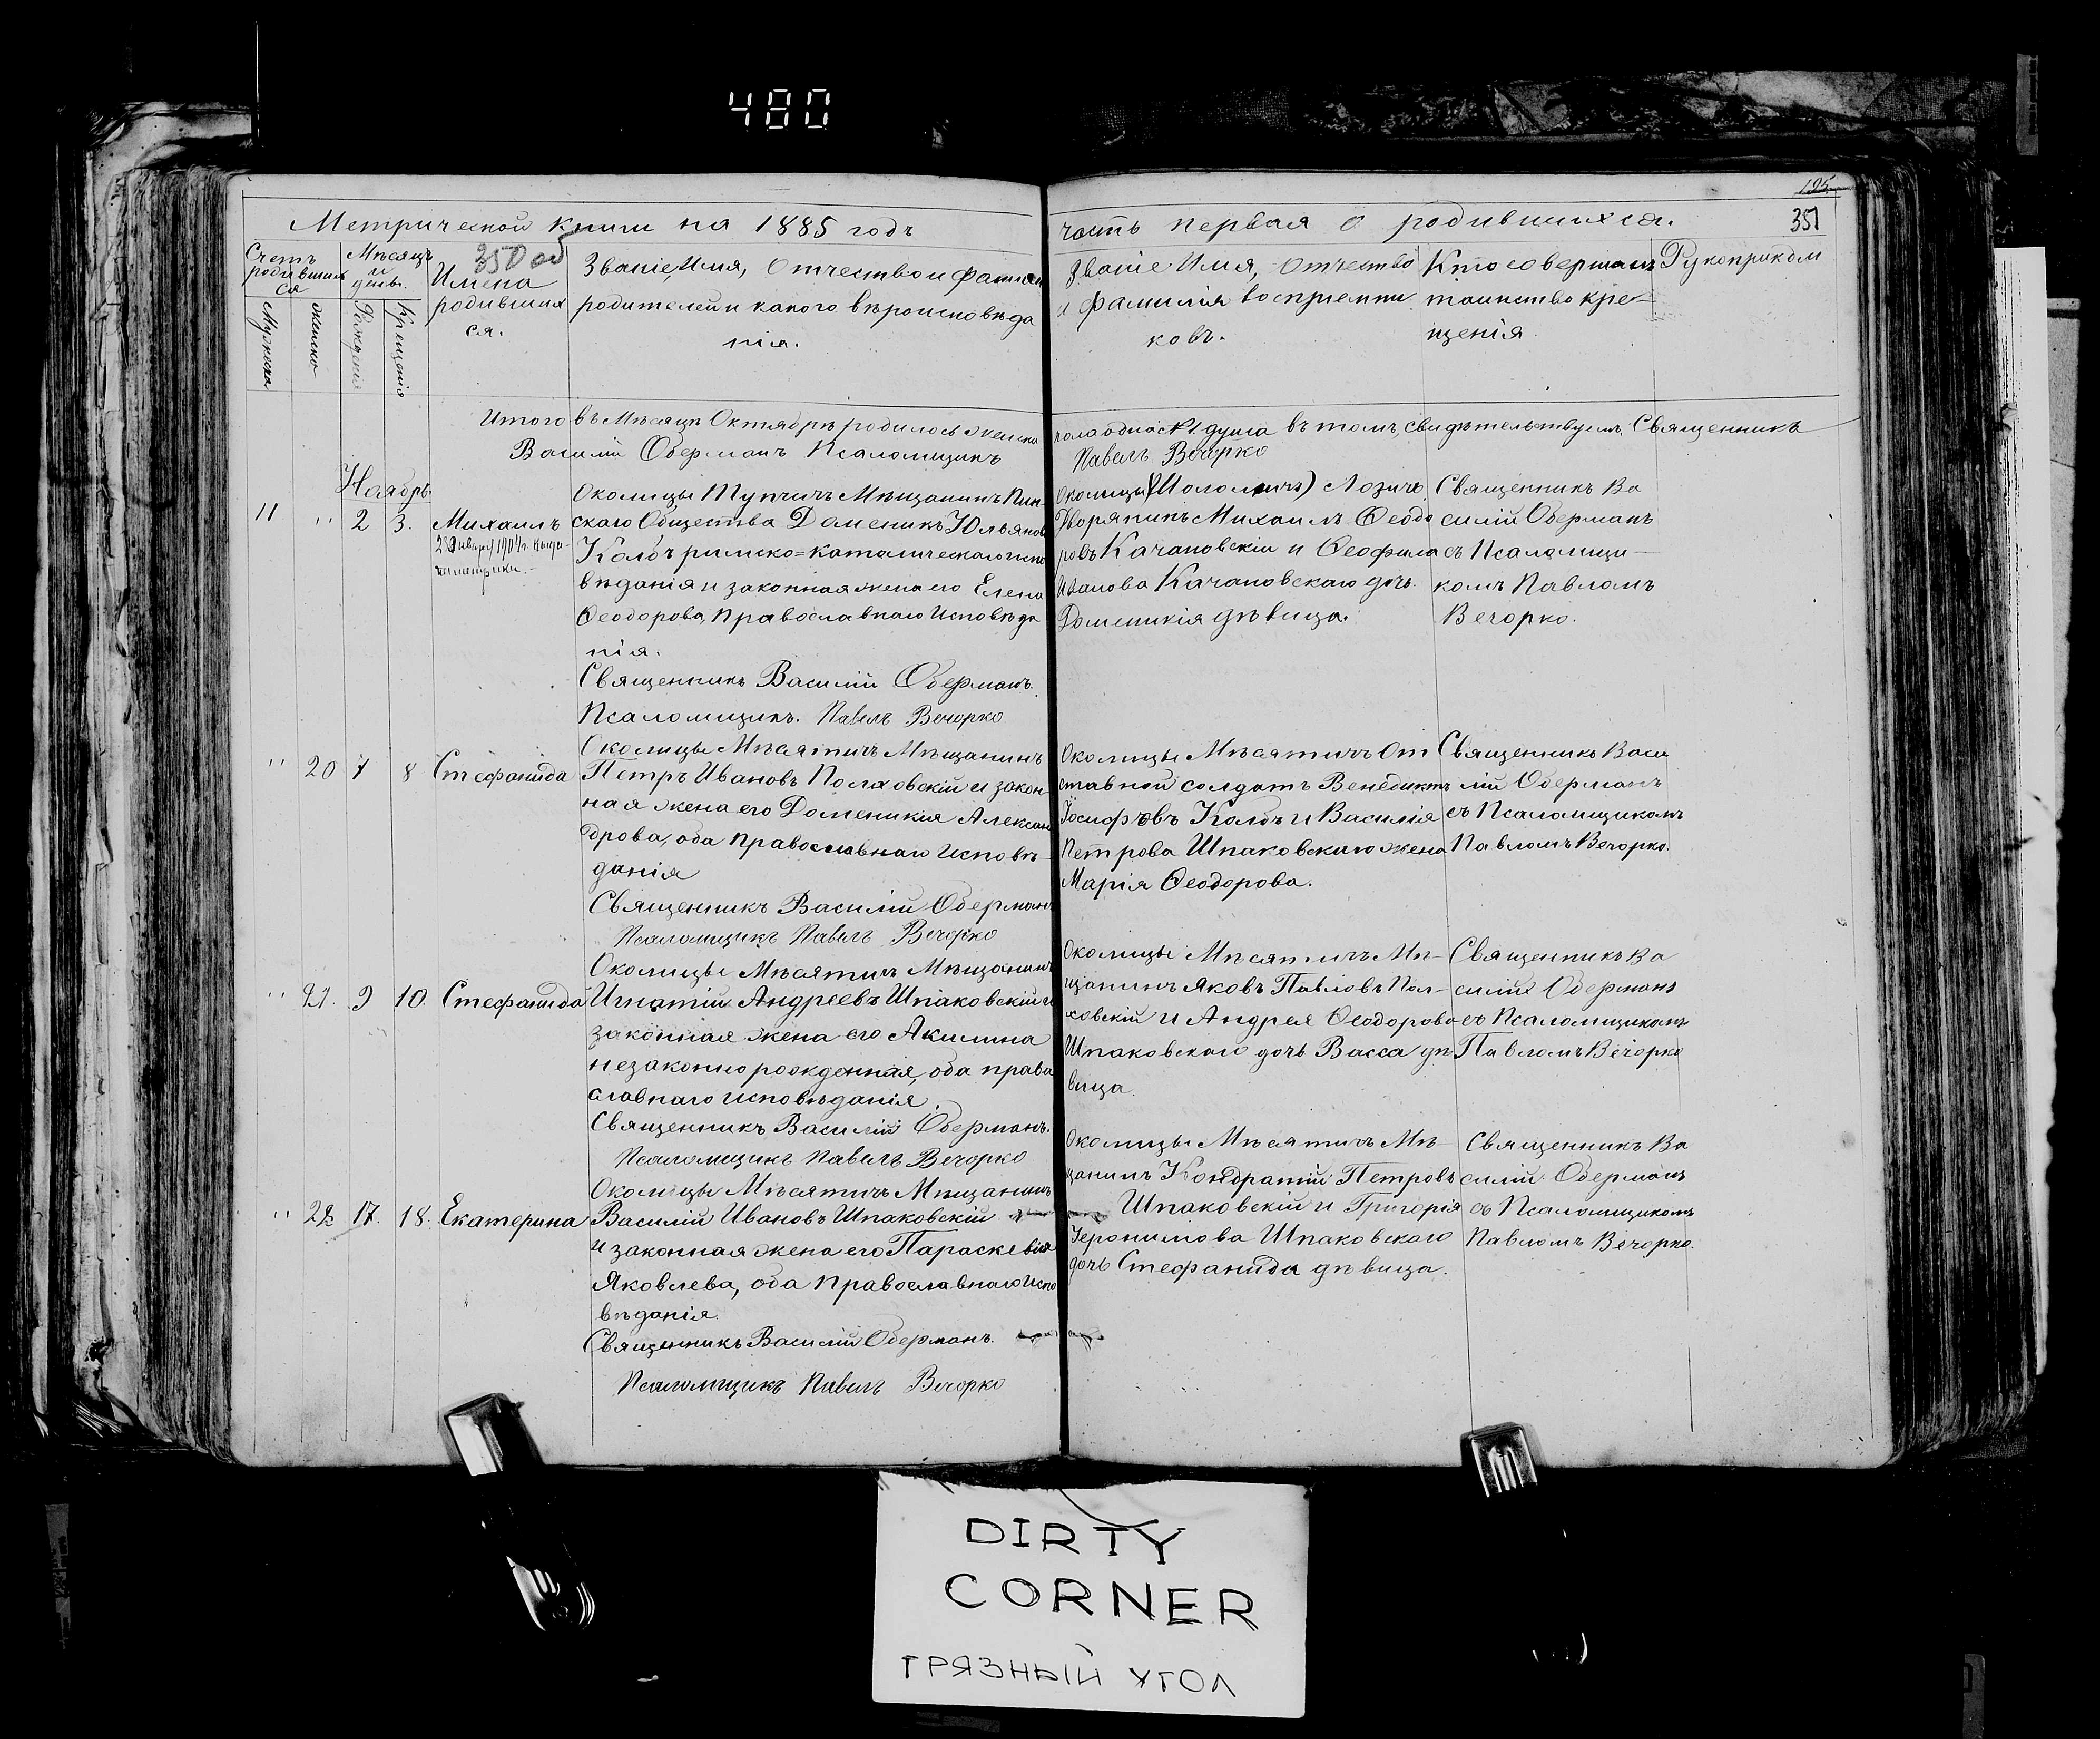 480
195
351
Метрической книги на 1885 годъ
часть первая о родившихся.
350 об
Счетъ родившихся
Мѣсяцъ и день.
Имена родившихся.
Званіе, Имя, Отчество и фамилія
родителей и какого вѣроисповѣда
нія.
Мужеска
женска
Рожденія
Крещенія
Званіе Имя, Отчество
и фамилія воспріемни
ковъ.
Кто совершалъ
таинство кре-
щенія
Рукоприклад
Итого въ Мѣсяцѣ Октябрѣ родилось женска
пола одна душа въ томъ, свидѣтельствуемъ. Священникъ
Василій Оберманъ Псаломщикъ
Павелъ Вечорко
Ноябрь
11 " 2 3. Михаилъ
Околицы Тупчичъ Мѣщанинъ Пин-
скаго Общества Доменикъ Юльянов
Колбъ римско=католическаго испо
вѣданія и законная жена его Елена
Ѳеодорова, Православнаго Исповѣда
нія.
Священникъ Василій Оберманъ.
Псаломщикъ. Павелъ Вечорко
Дворянинъ Михаилъ Ѳеодо
ровъ Качановскій и Ѳеофила
Иванова Качановскаго дочь
Доменикія дѣвица.
Священникъ Ва
силій Оберманъ
съ Псаломщи-
комъ Павломъ
Вечорко.
" 20 7 8 Стефанида
Околицы Мѣсятичъ Мѣщанинъ
Петръ Ивановъ Поляховскій и закон-
ная жена его Доменикія Алексан
дрова, оба Православнаго Исповѣ-
данія
Священникъ Василій Оберманъ
Псаломщикъ Павелъ Вечорко
Околицы Мѣсятичъ От
ставной солдатъ Венедиктъ
Іосифовъ Колбъ и Василія
Петрова Шпаковскаго жена
Марія Ѳеодорова.
Священникъ Васи
лій Оберманъ
съ Псаломщикомъ
Павломъ Вечорко.
" 21. 9 10. Стефанида
Околицы Мѣсятичъ Мѣщанинъ
Игнатій Андреевъ Шпаковскій и
законная жена его Акилина
незаконнорожденная, оба право
славнаго исповѣданія.
Священникъ Василій Оберманъ.
Псаломщикъ Павелъ Вечорко
Околицы Мѣсятичъ Мѣ-
щанинъ Яковъ Павловъ Пол-
ховскій и Андрея Ѳеодорова
Шпаковскаго дочь Васса дѣ
вица
Священникъ Ва
силій Оберманъ
съ Псаломщикомъ
Павломъ Вечорко
" 22 17. 18. Екатерина
Околицы Мѣсятичъ Мѣщанинъ
Василій Ивановъ Шпаковскій
и законная жена его Параскевія
Яковлева, оба Православнаго Испо
вѣданія.
Священникъ Василій Оберманъ.
Псаломщикъ Павелъ Вечорко
Околицы Мѣсятичъ Мѣ-
щанинъ Кондратій Петровъ
Шпаковскій и Григорія
Іеронимова Шпаковскаго
дочь Стефанида дѣвица.
Священникъ Ва
силій Оберманъ
съ Псаломщикомъ
Павломъ Вечорко.
DIRTY
CORNER
ГРЯЗНЫЙ УГОЛ